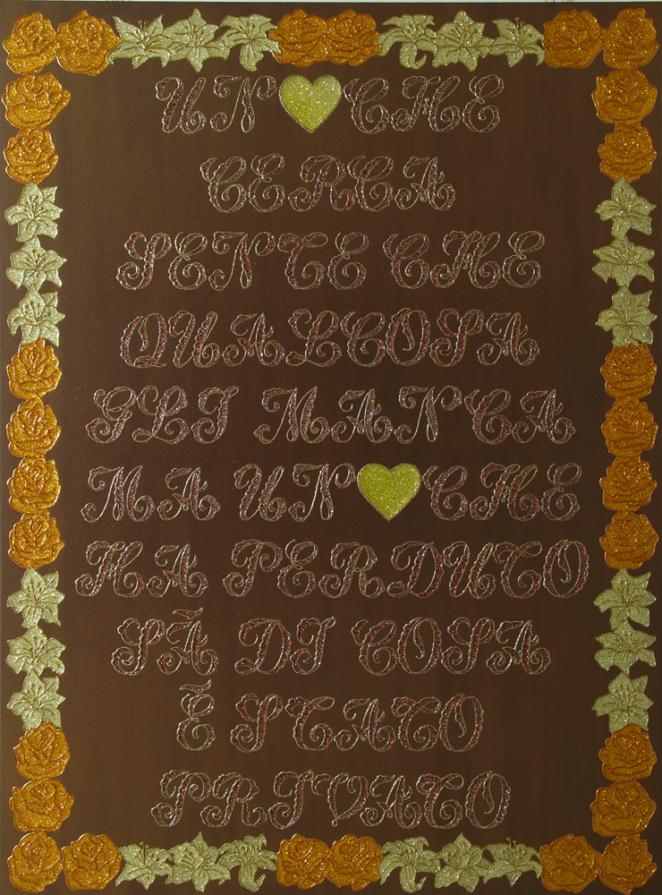 UN CHE
CERCA
SENTE CHE
QUALCOSA
GLI MANCA
MA UN CHE
HA PERDUTO
SÃ DI COSA
Ẽ STATO
PRIVATO